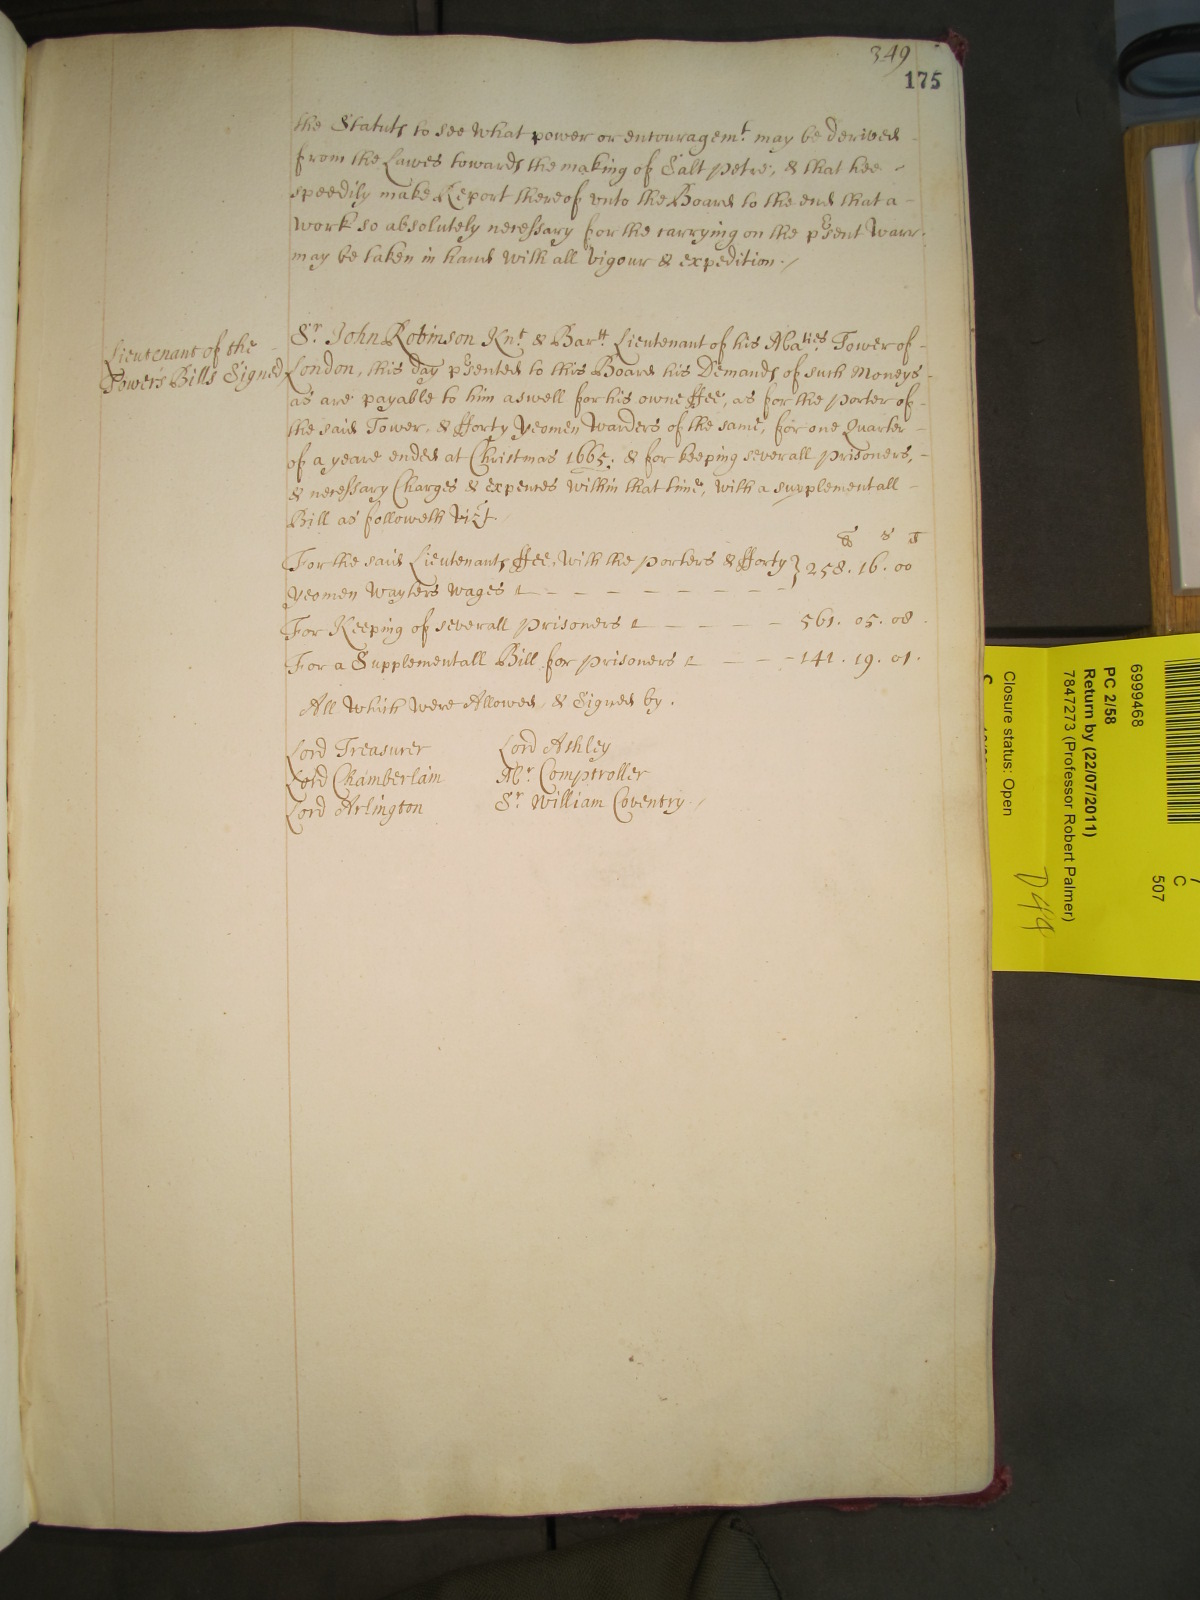 349
175
the Statuts to see what power or encouragemt may be derived
from the Lawes towards the making of Salt petre, & that hee
speedily make Report thereof vnto the Board to the end that a
work so absolutely necessary for the carrying on the pesent Warr
may be taken in hand with all vigour & expedition./
Lieutenant of the
Towers Bills Signed
Sr. John Robinson Knt. & Bartt Lieutenant of his Maties Tower of
London, this day pesented to this Board his Demands of such Moneys
as are payable to him aswell for his owne ffee, as for the Porter of
the said Tower, & fforty Yeomen Warders of the same, for one Quarter
of a yeare ended at Christmas 1665: & for keeping severall Prisoners,
& necessary Charges & expences within that time, with a supplementall
Bill as followeth vizt.
For the said Lieutenants ffee, with the Porters & fforty } 258. 16. 00
Yeomen Wayters wages
For Keeping of severall Prisoners - - - - 561. 05. 08
For a Supplementall Bill for Prisoners - - - 141. 19. 01.
All which were Allowed, & Signed by.
Lord Treasurer Lord Ashley
Lord Chamberlain Mr. Comptroller
Lord Arlington Sr. William Coventry./
6999468
PC 2/58
Return by (22/07/2011)
7847273 (Professor Robert Palmer)
Closure status: Open
C
507
D49